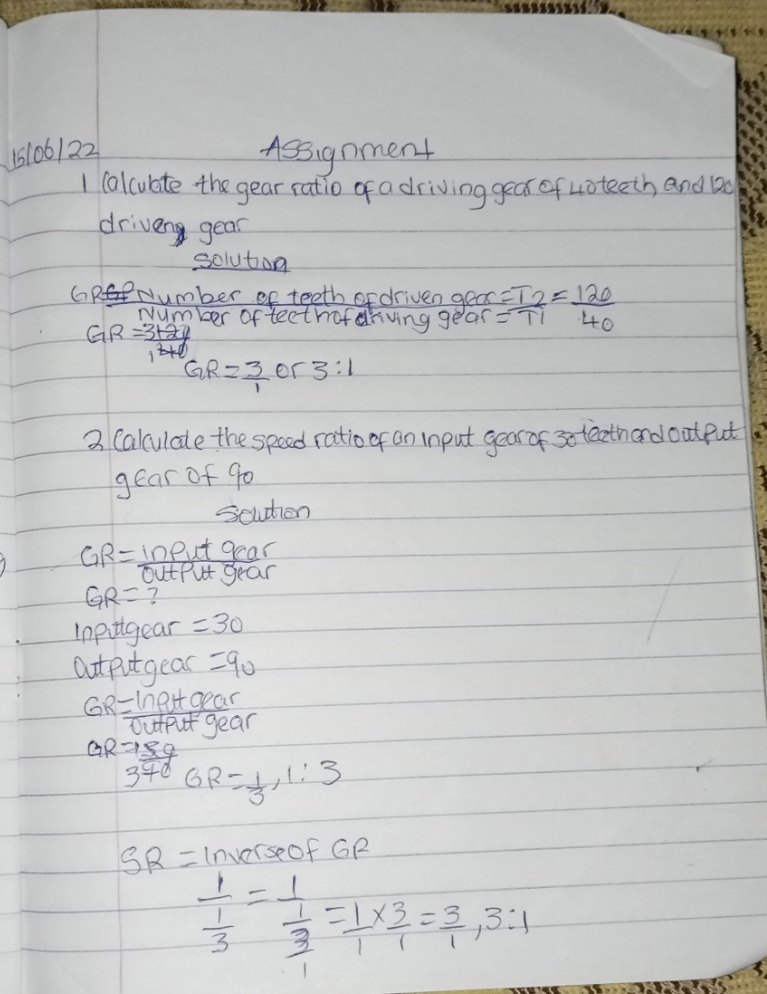 15/06/22 Assignment
1 Calculate the gear ratio of a driving gear of 40 teeth, and 120
driven gear
Solution
GR = Number of teeth of driven gear = T2 = 120
Number of teeth of driving gear = T1 40
GR =
GR = 3/1 or 3:1
2 Calculate the speed ratio of an input gear of 30 teeth and output
gear of 90
Solution
GR = input gear
output gear
GR = ?
Inputgear = 30
Outputgear = 90
GR = input gear
output gear
GR =
GR = 1/3, 1:3
SR = Inverse of GR
1 = 1
1/3 1/3/1 = 1/1 × 3/1 = 3/1, 3:1